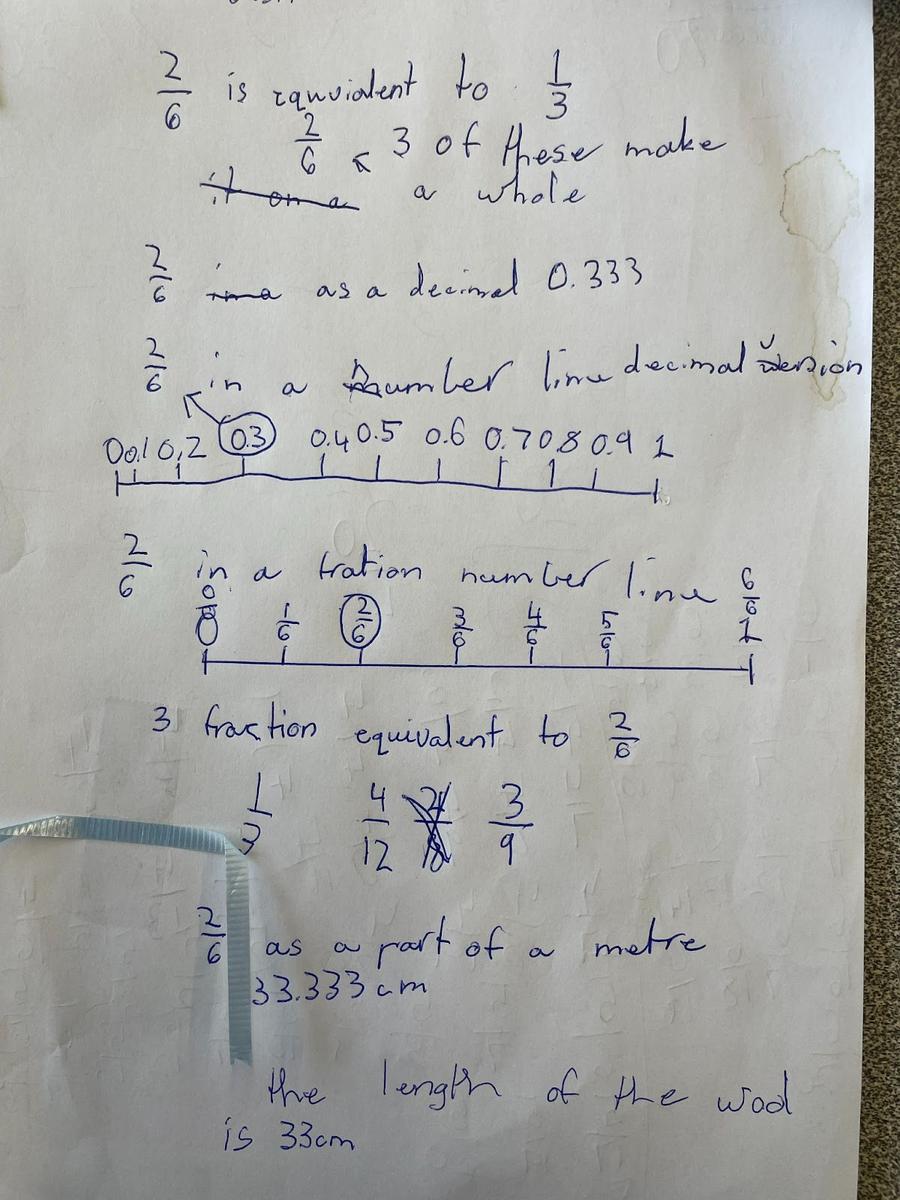 2/6 is rquvialent to 1/3
2/6 ↖ 3 of these make
it on a a whole
2/6 in a as a decimal 0.333
2/6 in a number line decimal version
0 0.1 0.2 0.3 0.4 0.5 0.6 0.7 0.8 0.9 1
2/6 in a fration number line
0/6 0 1/6 2/6 3/6 4/6 5/6 6/6 1
3 fraction equivalent to 2/6
1/3 4/12 3/9
2/6 as a part of a metre
33.333 cm
the length of the wod
is 33cm